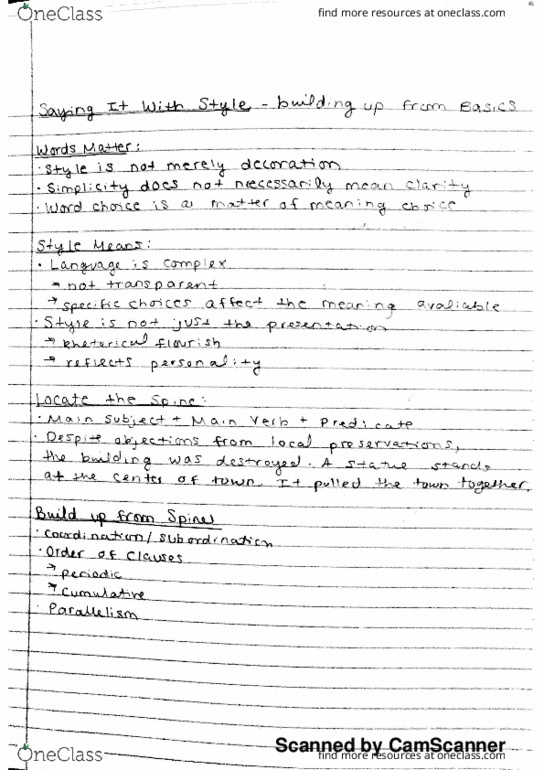 OneClass
find more resources at oneclass.com
Saying It With Style - building up from Basics
Words Matter:
· Style is not merely decoration
· Simplicity does not necessarily mean clarity
· Word choice is a matter of meaning choice
Style Means:
· Language is complex
→ not transparent
→ specific choices affect the meaning avaliable
· Style is not just the presentation
→ rhetorical flourish
→ reflects personality
Locate the Spine:
· Main Subject + Main Verb + Predicate
· Despite objections from local preservations,
the building was destroyed. A statue stands
at the center of town. It pulled the town together.
Build up from Spines
· Coordination/subordination
· Order of Clauses
→ periodic
→ cumulative
· Parallelism
Scanned by CamScanner
OneClass
find more resources at oneclass.com